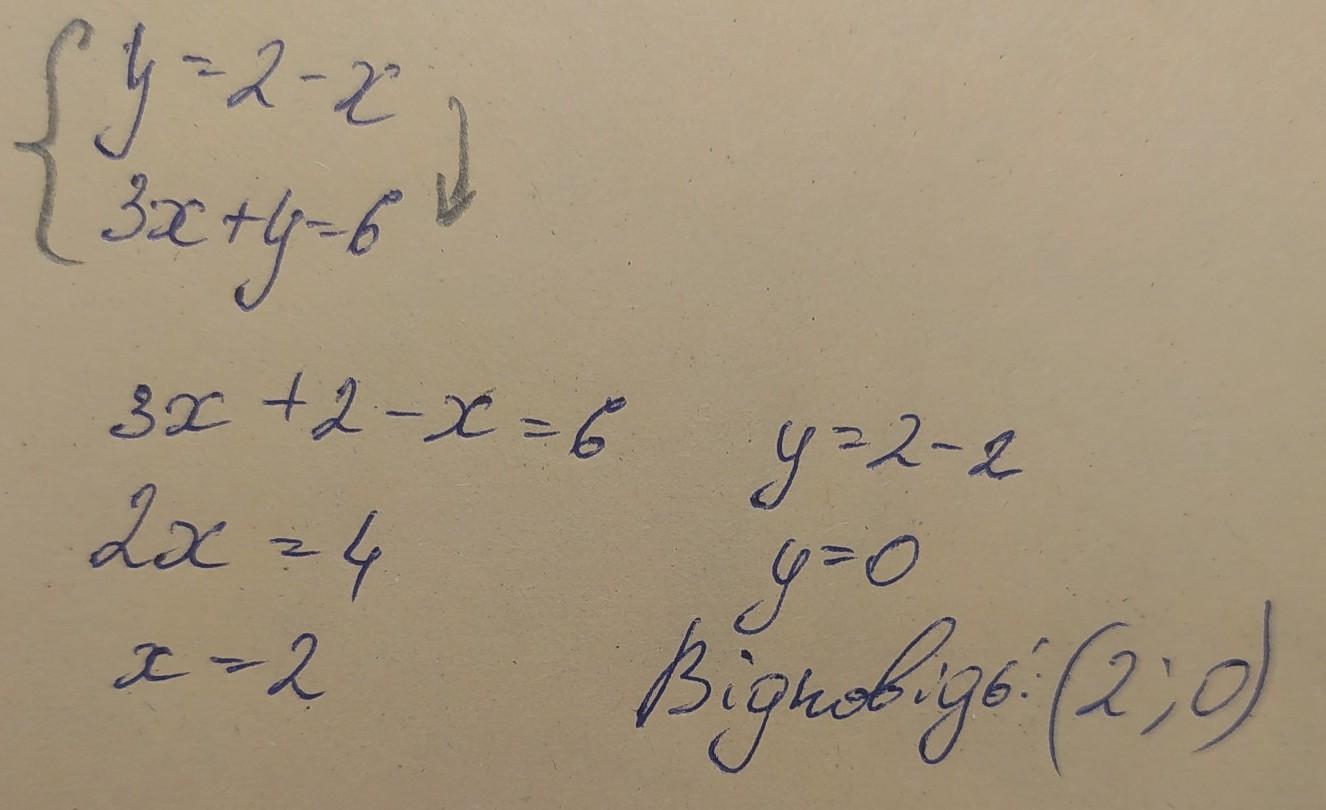 y = 2 - x
3x + y = 6
3x + 2 - x = 6
2x = 4
x = 2
y = 2 - 2
y = 0
Відповідь: (2; 0)